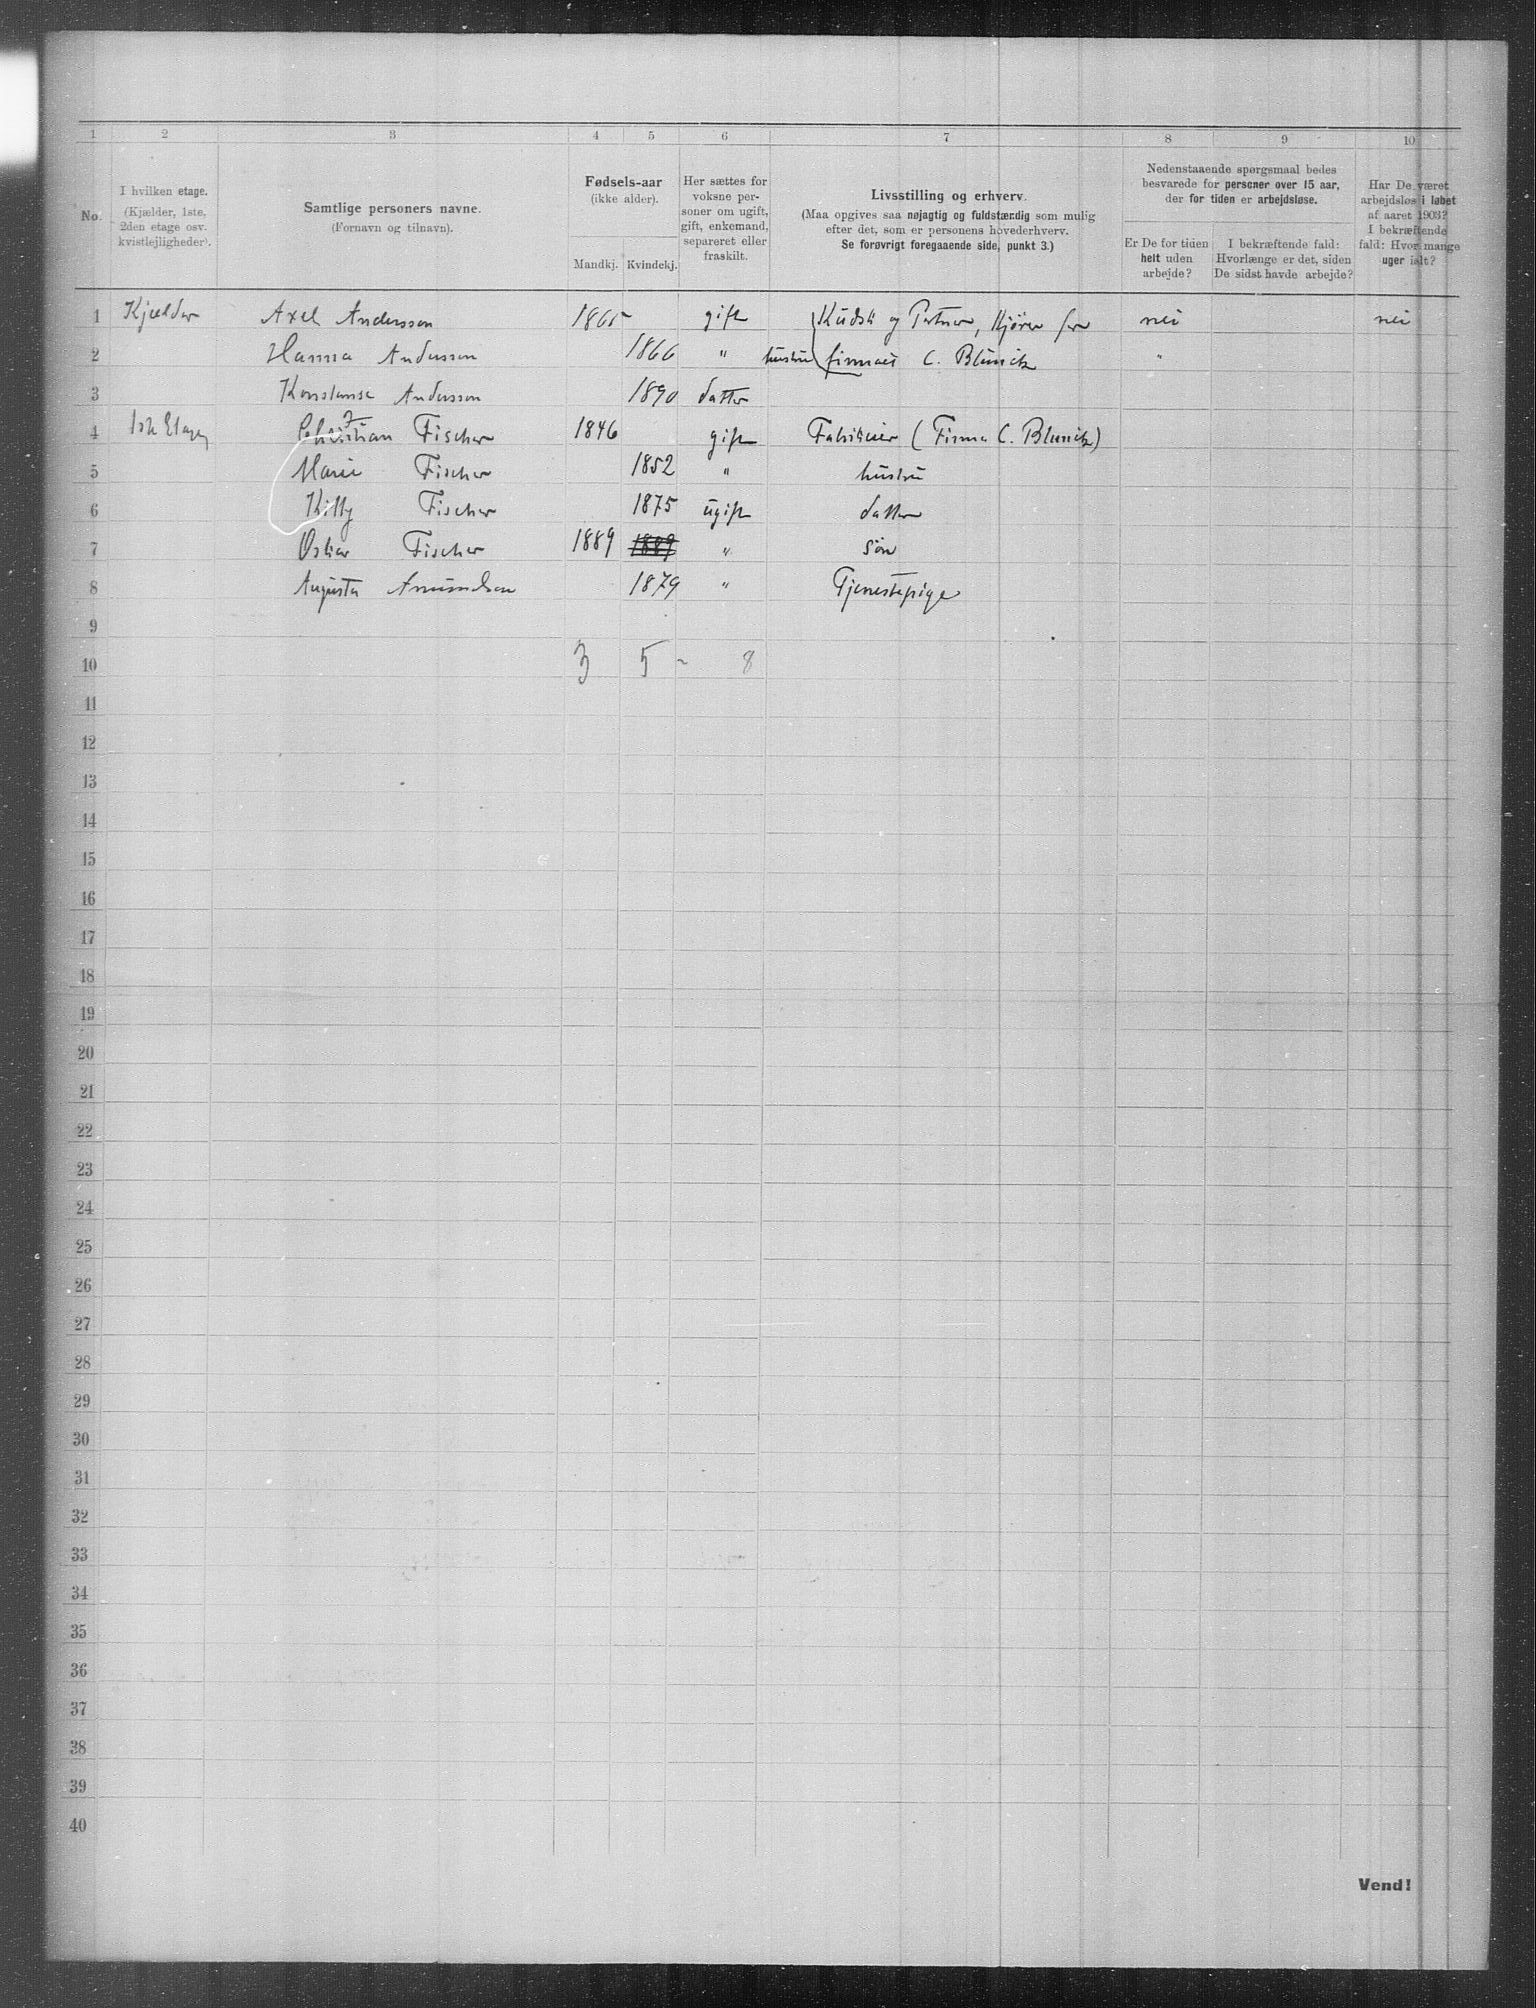 1 2 3 4 5 6 7 8 9 10
No.
I hvilken etage.
(Kjælder, 1ste,
2den etage osv.
kvistlejligheder).
Samtlige personers navne.
(Fornavn og tilnavn).
Fødsels-aar
(ikke alder).
Mandkj. Kvindekj.
Her sættes for
voksne per-
soner om ugift,
gift, enkemand,
separeret eller
fraskilt.
Livsstilling og erhverv.
(Maa opgives saa nøjagtig og fuldstændig som mulig
efter det, som er personens hovederhverv.
Se forøvrigt foregaaende side, punkt 3.)
Nedenstaaende spørgsmaal bedes
besvarede for personer over 15 aar,
der for tiden er arbejdsløse.
Er De for tiden
helt uden
arbejde?
I bekræftende fald:
Hvorlænge er det, siden
De sidst havde arbejde?
Har De været
arbejdsløs i løbet
af aaret 1903?
I bekræftende
fald: Hvor mange
uger ialt?
1 Kjælder Axel Andersson 1865 gift Kudsk og Portner, Kjører for nei nei
2 Hanna Andersson 1866 " hustru firmaet C. Blunck "
3 Konstanse Andersson 1890 datter
4 1ste Etage Christian Fischer 1846 gift Fabrikeier (Firma C. Blunck)
5 Marie Fischer 1852 " hustru
6 Kitty Fischer 1875 ugift datter
7 Oskar Fischer 1889 1889 " søn
8 Augusta Amundsen 1879 " Tjenestepige
9
10 3 5 - 8
11
12
13
14
15
16
17
18
19
20
21
22
23
24
25
26
27
28
29
30
31
32
33
34
35
36
37
38
39
40
Vend!